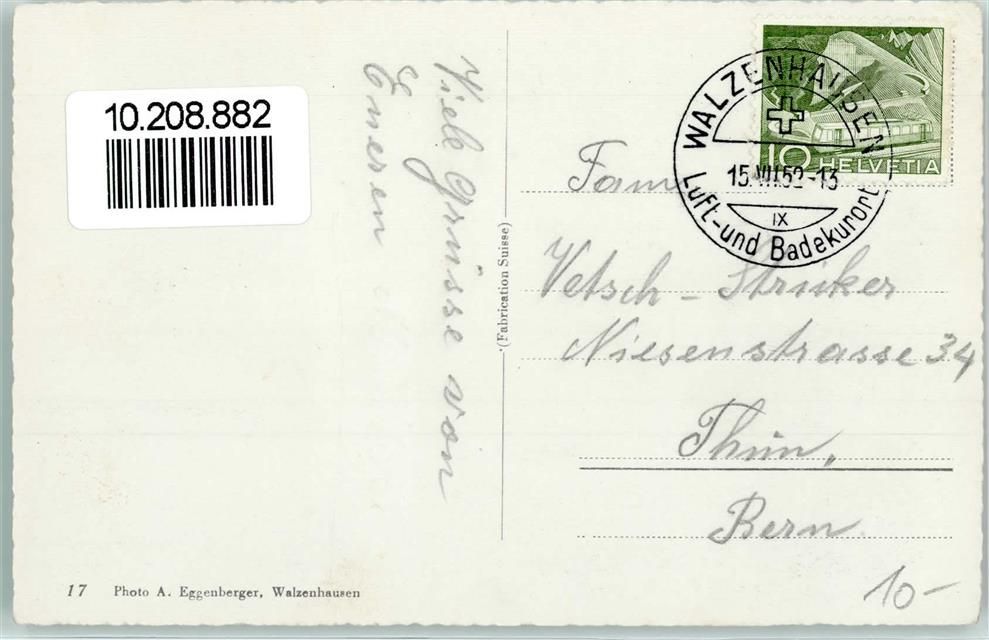 10.208.882
Viele Grüsse von
Eueren
(Fabrication Suisse)
17 Photo A. Eggenberger, Walzenhausen
WALZENHAUSEN
15.VII.52-13
IX
Luft- und Badekurort
10 HELVETIA
Fam
Vetsch - Striker
Niesenstrasse 34
Thun,
Bern
10-